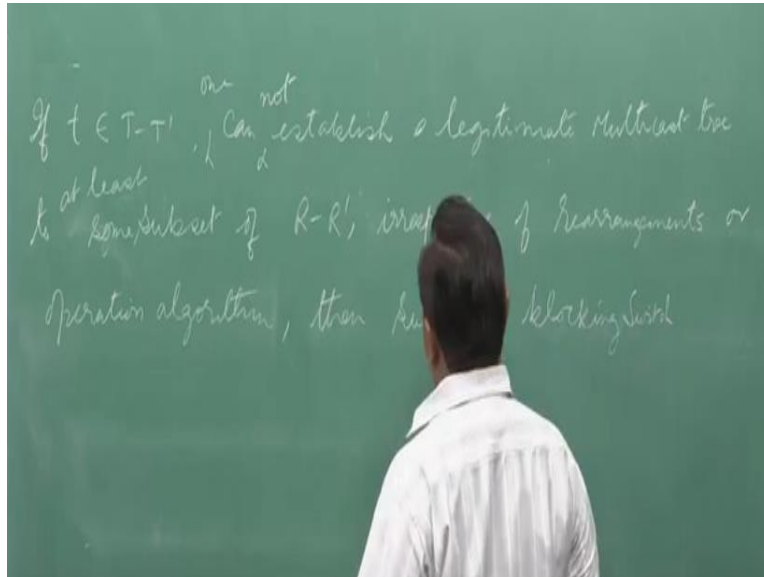 If t ∈ T-T', one can not establish a legitimate Multicast tree
to at least some subset of R-R', of rearrangements or
operation algorithm, then blocking Switch